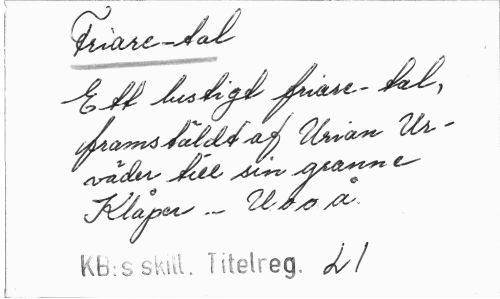 Friare-tal
Ett lustigt friare-tal,
framstäldt af Urian Ur-
väder till sin granne
Klåper - U. o. å.
KB:s skill. Titelreg. L1